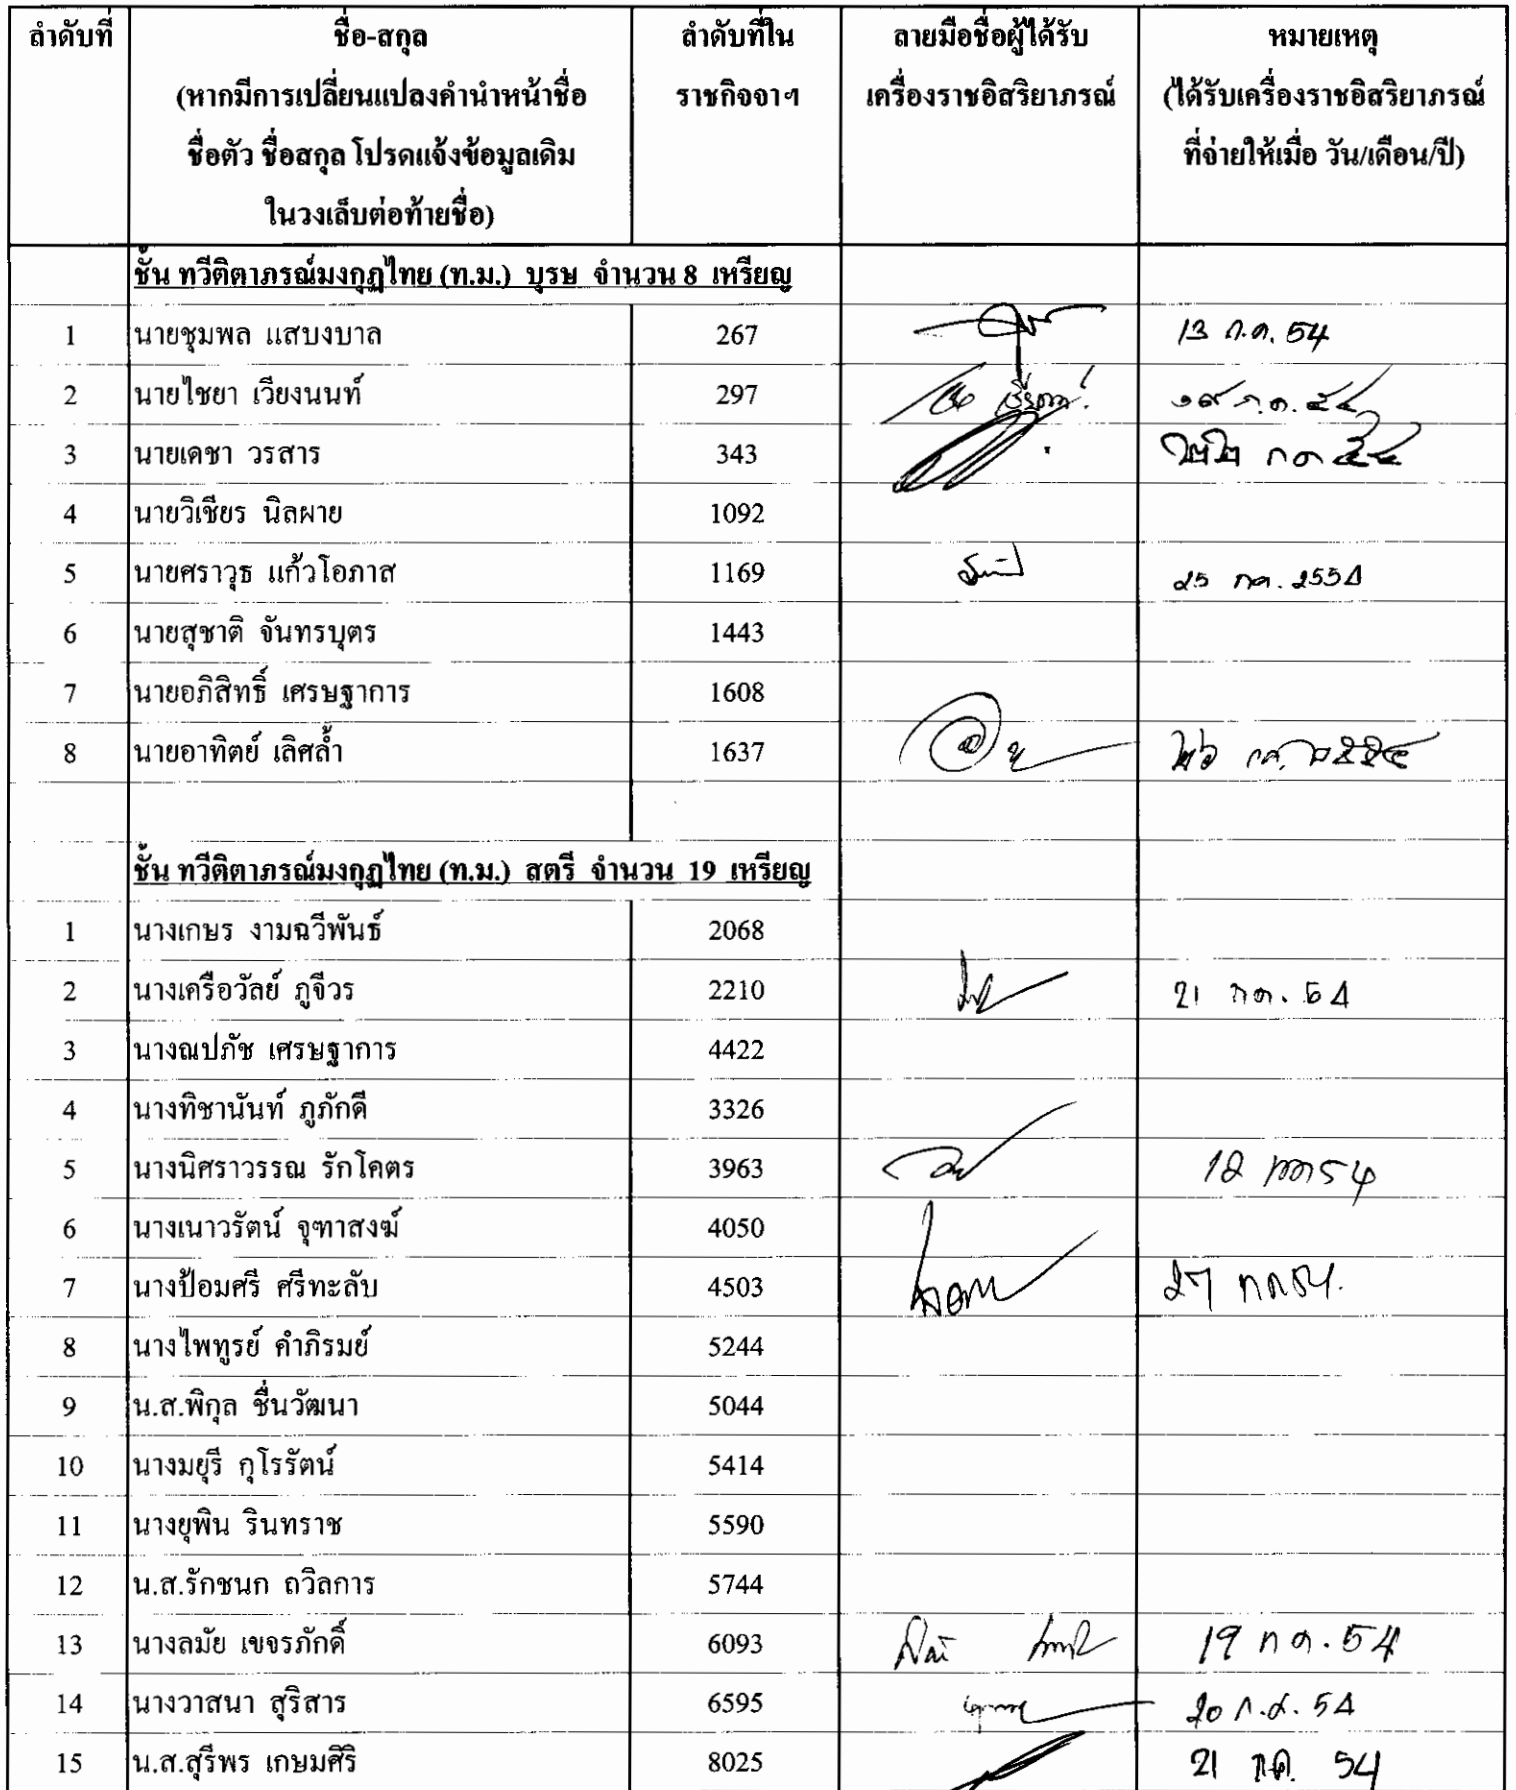 ลำดับที่ ชื่อ-สกุล ลำดับที่ใน ลายมือชื่อผู้ได้รับ หมายเหตุ
(หากมีการเปลี่ยนแปลงคำนำหน้าชื่อ ราชกิจจาฯ เครื่องราชอิสริยาภรณ์ (ได้รับเครื่องราชอิสริยาภรณ์
ชื่อตัว ชื่อสกุล โปรดแจ้งข้อมูลเดิม ที่จ่ายให้เมื่อ วัน/เดือน/ปี)
ในวงเล็บต่อท้ายชื่อ)
ชั้น ทวีติตาภรณ์มงกุฎไทย (ท.ม.) บุรษ จำนวน 8 เหรียญ
1 นายชุมพล แสบงบาล 267 13 ก.ค. 54
2 นายไชยา เวียงนนท์ 297 ๑๙ ก.ค. ๕๔
3 นายเดชา วรสาร 343 ๒๒ กค ๕๔
4 นายวิเชียร นิลผาย 1092
5 นายศราวุธ แก้วโอภาส 1169 ๑5 กค. 2554
6 นายสุชาติ จันทรบุตร 1443
7 นายอภิสิทธิ์ เศรษฐาการ 1608
8 นายอาทิตย์ เลิศล้ำ 1637 ๒๖ กค. ๒๕๕๔
ชั้น ทวีติตาภรณ์มงกุฎไทย (ท.ม.) สตรี จำนวน 19 เหรียญ
1 นางเกษร งามฉวีพันธ์ 2068
2 นางเครือวัลย์ ภูจีวร 2210 21 กค. 54
3 นางณปภัช เศรษฐาการ 4422
4 นางทิชานันท์ ภูภักดี 3326
5 นางนิศราวรรณ รักโคตร 3963 12 กค 54
6 นางเนาวรัตน์ จุฑาสงฆ์ 4050
7 นางป้อมศรี ศรีทะลับ 4503 27 กค 54.
8 นางไพทูรย์ คำภิรมย์ 5244
9 น.ส.พิกุล ชื่นวัฒนา 5044
10 นางมยุรี กุโรรัตน์ 5414
11 นางยุพิน รินทราช 5590
12 น.ส.รักชนก ถวิลการ 5744
13 นางลมัย เขจรภักดิ์ 6093 19 กค. 54
14 นางวาสนา สุริสาร 6595 20 ก.ค. 54
15 น.ส.สุรีพร เกษมศิริ 8025 21 กค. 54